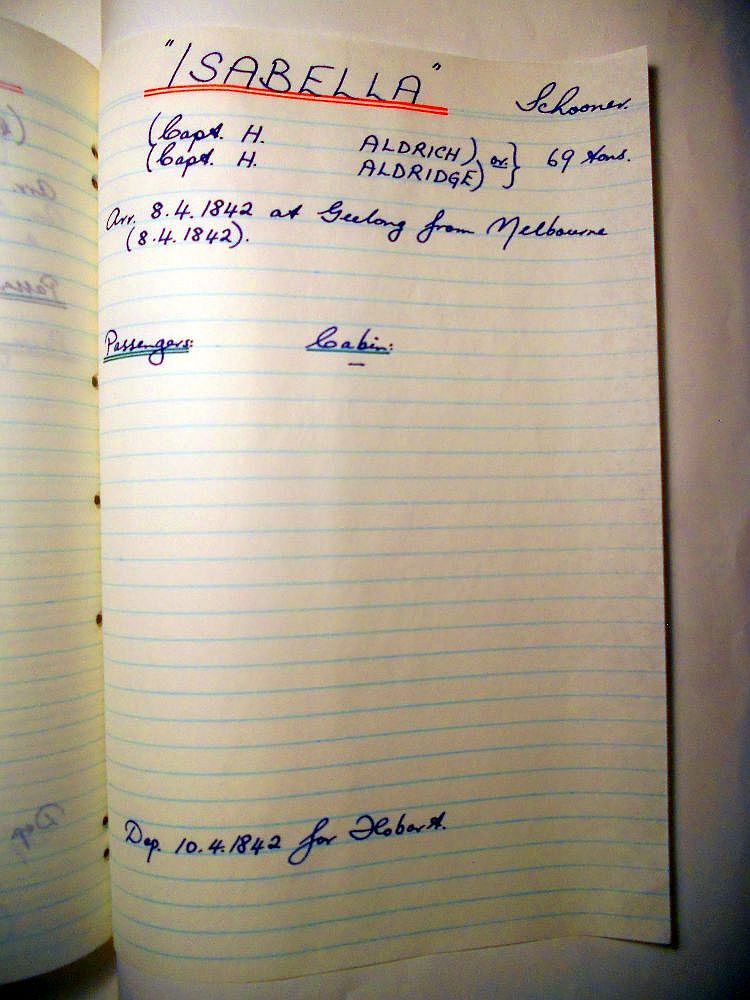 "ISABELLA" Schooner.
(Capt. H. ALDRICH) or } 69 tons.
(Capt. H. ALDRIDGE)
Arr. 8.4.1842 at Geelong from Melbourne
(8.4.1842).
Passengers: Cabin:
–
Dep. 10.4.1842 for Hobart.